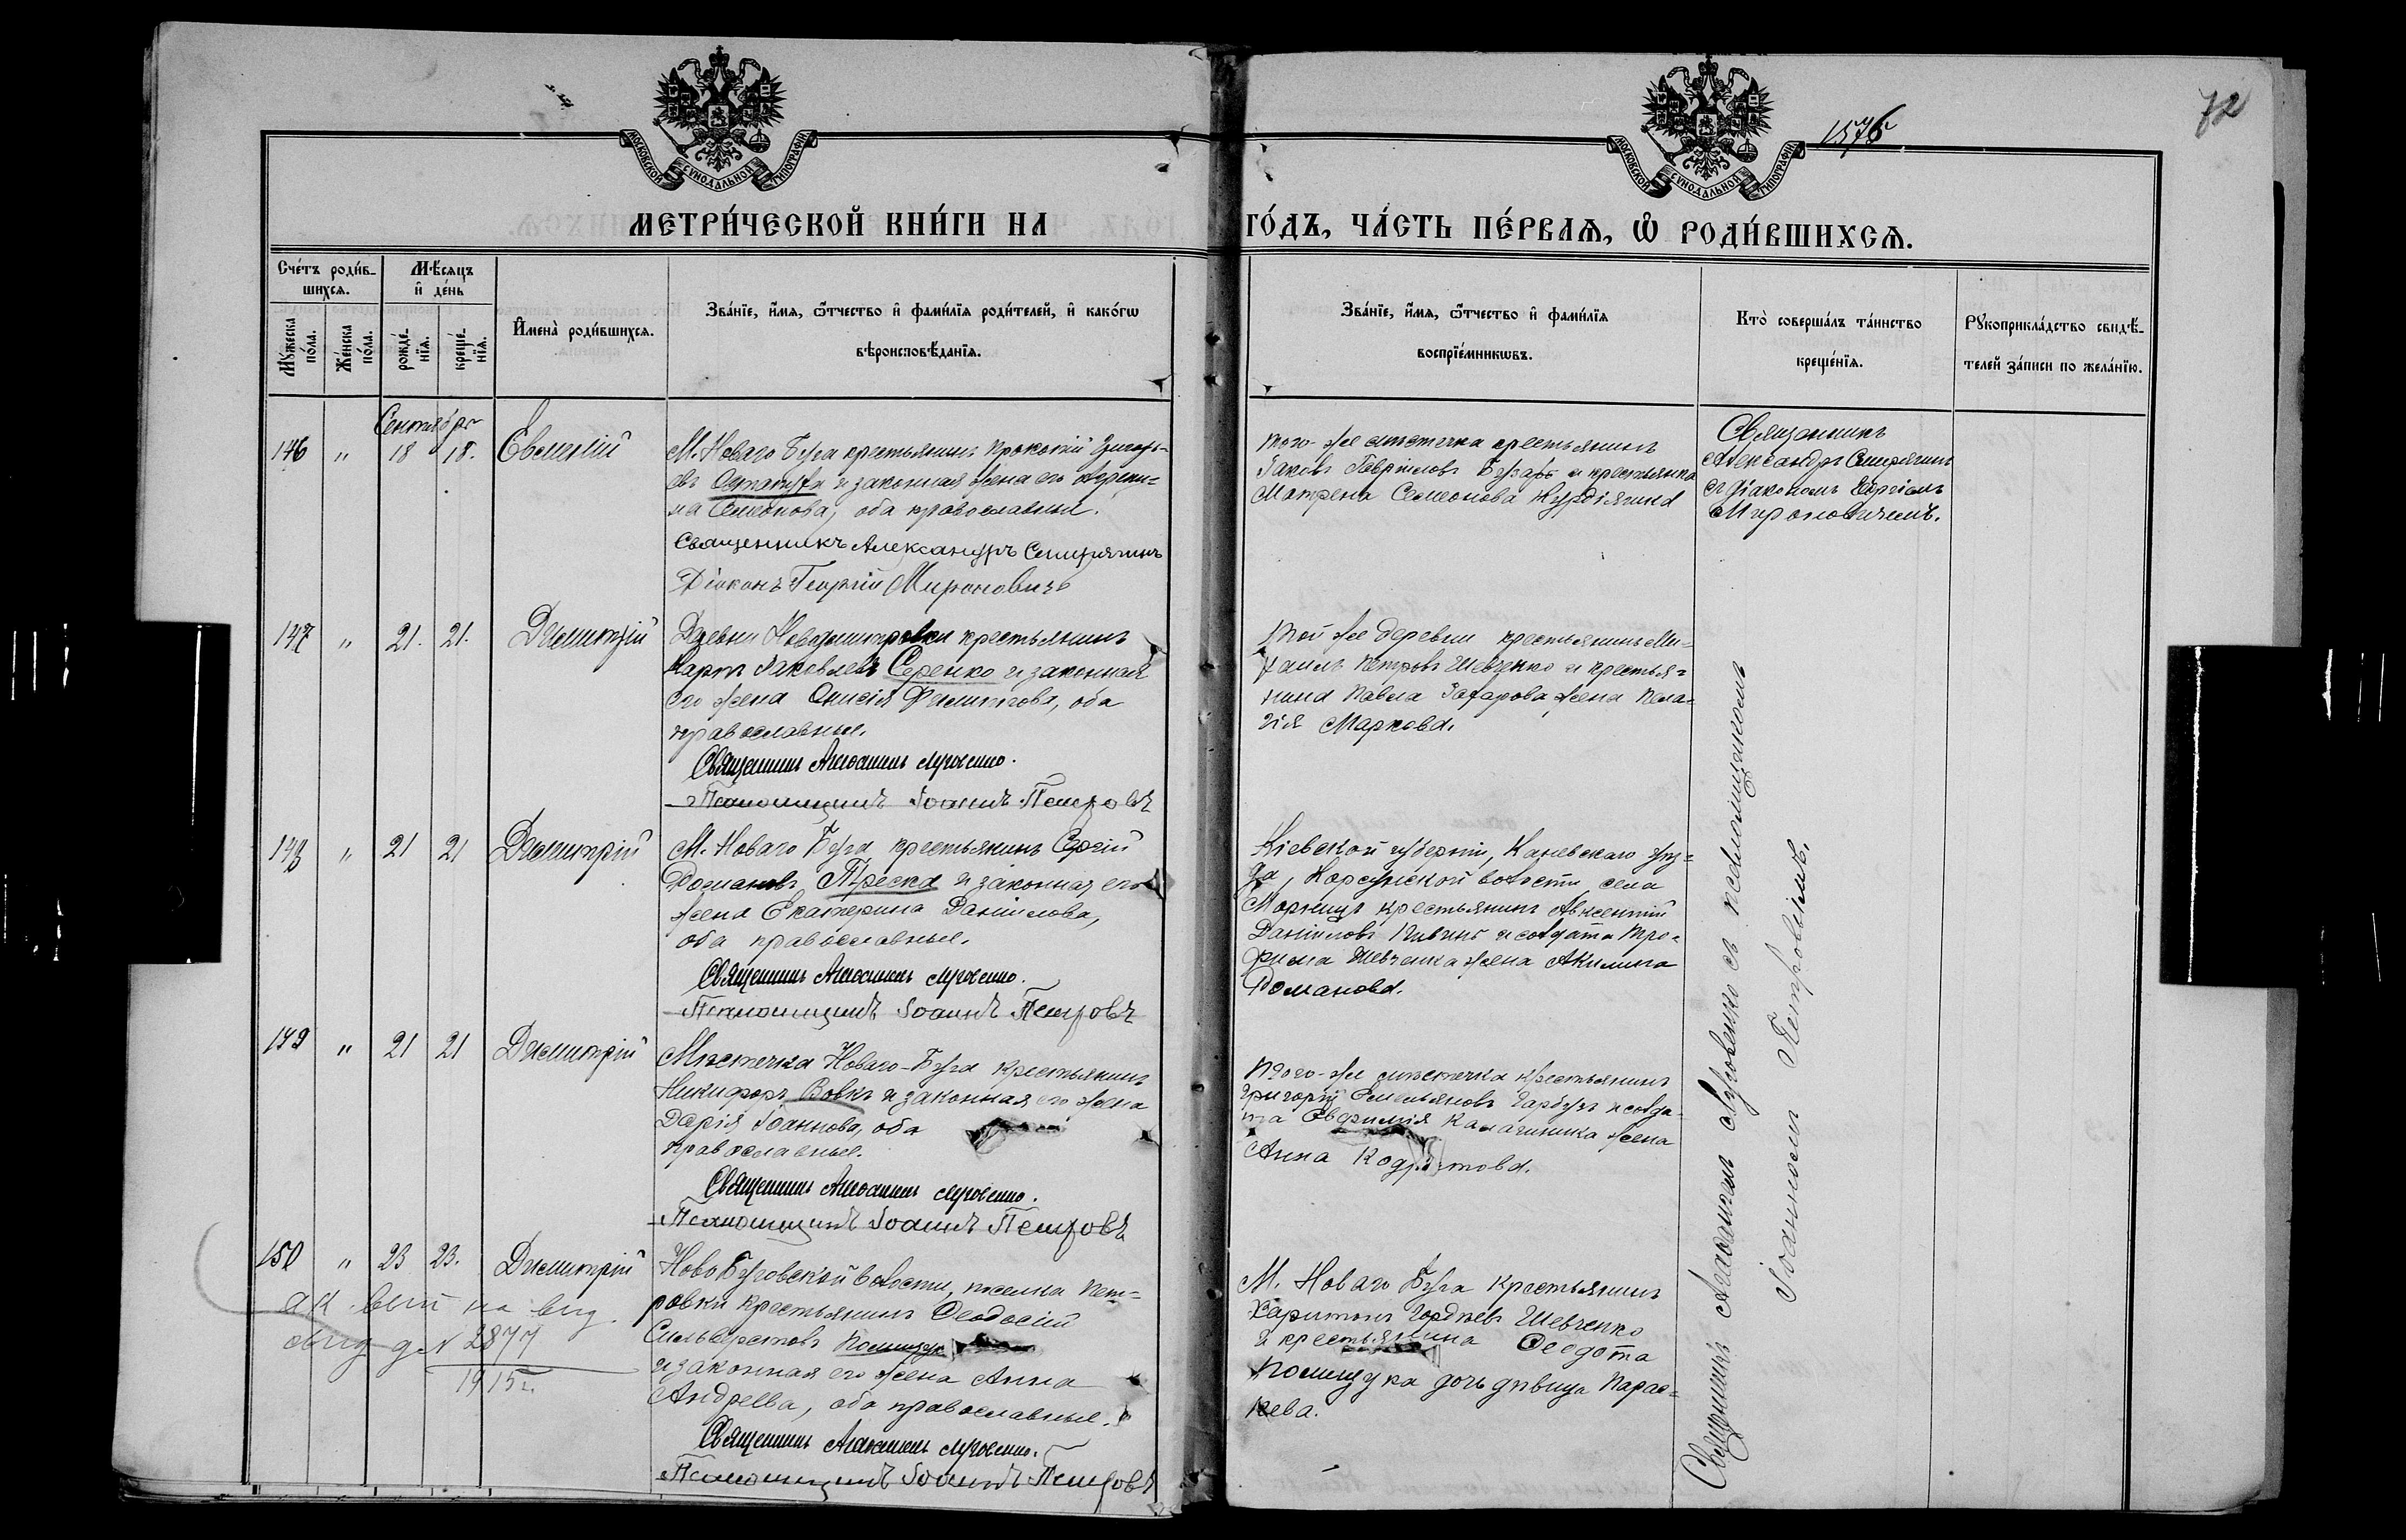 1576
72
МОСКОВСКОЙ СѴНОДАЛЬНОЙ ТИПОГРАФІИ
МОСКОВСКОЙ СѴНОДАЛЬНОЙ ТИПОГРАФІИ
МЕТРИ́ЧЕСКОЙ КНИ́ГИ НА
ГО́ДЪ, ЧА́СТЬ ПЕ́РВАѦ, Ѡ҆ РОДИ́ВШИХСѦ.
Сче́тъ роди́в-
шихсѧ.
Мѣ́сѧцъ
и҆ де́нь
Мꙋ́жеска
по́ла.
Же́нска
по́ла.
рожде́-
нїѧ.
креще́-
нїѧ.
И҆мена̀ роди́вшихсѧ.
Зва́нїе, и҆́мѧ, ѻ҆́тчество и҆ фами́лїѧ роди́телей, и҆ како́гѡ
вѣроисповѣ́данїѧ.
Зва́нїе, и҆́мѧ, ѻ҆́тчество и҆ фами́лїѧ
воспрїе́мникѡвъ.
Кто̀ соверша́лъ та́инство
креще́нїѧ.
Рꙋкоприкла́дство свидѣ́-
телей за́писи по жела́нїю.
Сентябрь
146 " 18 18. Евменій
М. Новаго Буга крестьянинъ Прокопій Григорь-
евъ и законная жена его
Семенова, оба православные.
Священникъ Александръ Смирягинъ
Діаконъ Георгій Мироновичъ
Того-же мѣстечка крестьянинъ
Іаковъ Гавріиловъ и крестьянка
Матрена Семеонова
Священникъ
Александръ Смирягинъ
съ діакономъ Георгіемъ
Мироновичемъ.
147 " 21. 21. Димитрій
Деревни Новодмитровки крестьянинъ
Карпъ Яковлевъ Серенко и законная
его жена Онисія Филиппова, оба
православные.
Священникъ Луговенко.
Псаломщикъ Іоаннъ Петровъ
Той же деревни крестьянинъ Ми-
хаилъ Петровъ Шевченко и крестья-
нина Павла Захарова жена Пела-
гія Маркова.
148 " 21 21 Димитрій
М. Новаго Буга крестьянинъ Сергій
Романовъ Пряска и законная его
жена Екатерина Даніилова,
оба православные.
Священникъ Луговенко.
Псаломщикъ Іоаннъ Петровъ
Кіевской губерніи, Каневскаго уѣз-
да, Корсунской волости села
крестьянинъ Авксентій
Даніиловъ и солдата Тро-
фима Шевченка жена Акилина
Романова.
149 " 21 21 Димитрій
Мѣстечка Новаго-Буга крестьянинъ
Никифоръ Вовкъ и законная его жена
Дарія Іоаннова, оба
православные.
Священникъ Луговенко.
Псаломщикъ Іоаннъ Петровъ
Того-же мѣстечка крестьянинъ
Григорій Емельяновъ Гарбузъ и солда-
та Евфимія Калачника жена
Анна Кодратова.
150 " 23 23. Димитрій
Ново Буговской волости, поселка Пет-
ровки крестьянинъ Ѳеодосій
Сильверстовъ Полищук
и законная его жена Анна
Андреева, оба православные.
Священникъ Луговенко.
Псаломщикъ Іоаннъ Петровъ
М. Новаго Буга крестьянинъ
Харитонъ Гордѣевъ Шевченко
и крестьянина Ѳеодота
Полищука дочь дѣвица Парас-
кева.
выд
2877
1915 г.
Священникъ Луговенко съ псаломщикомъ
Іоанномъ Петровымъ.